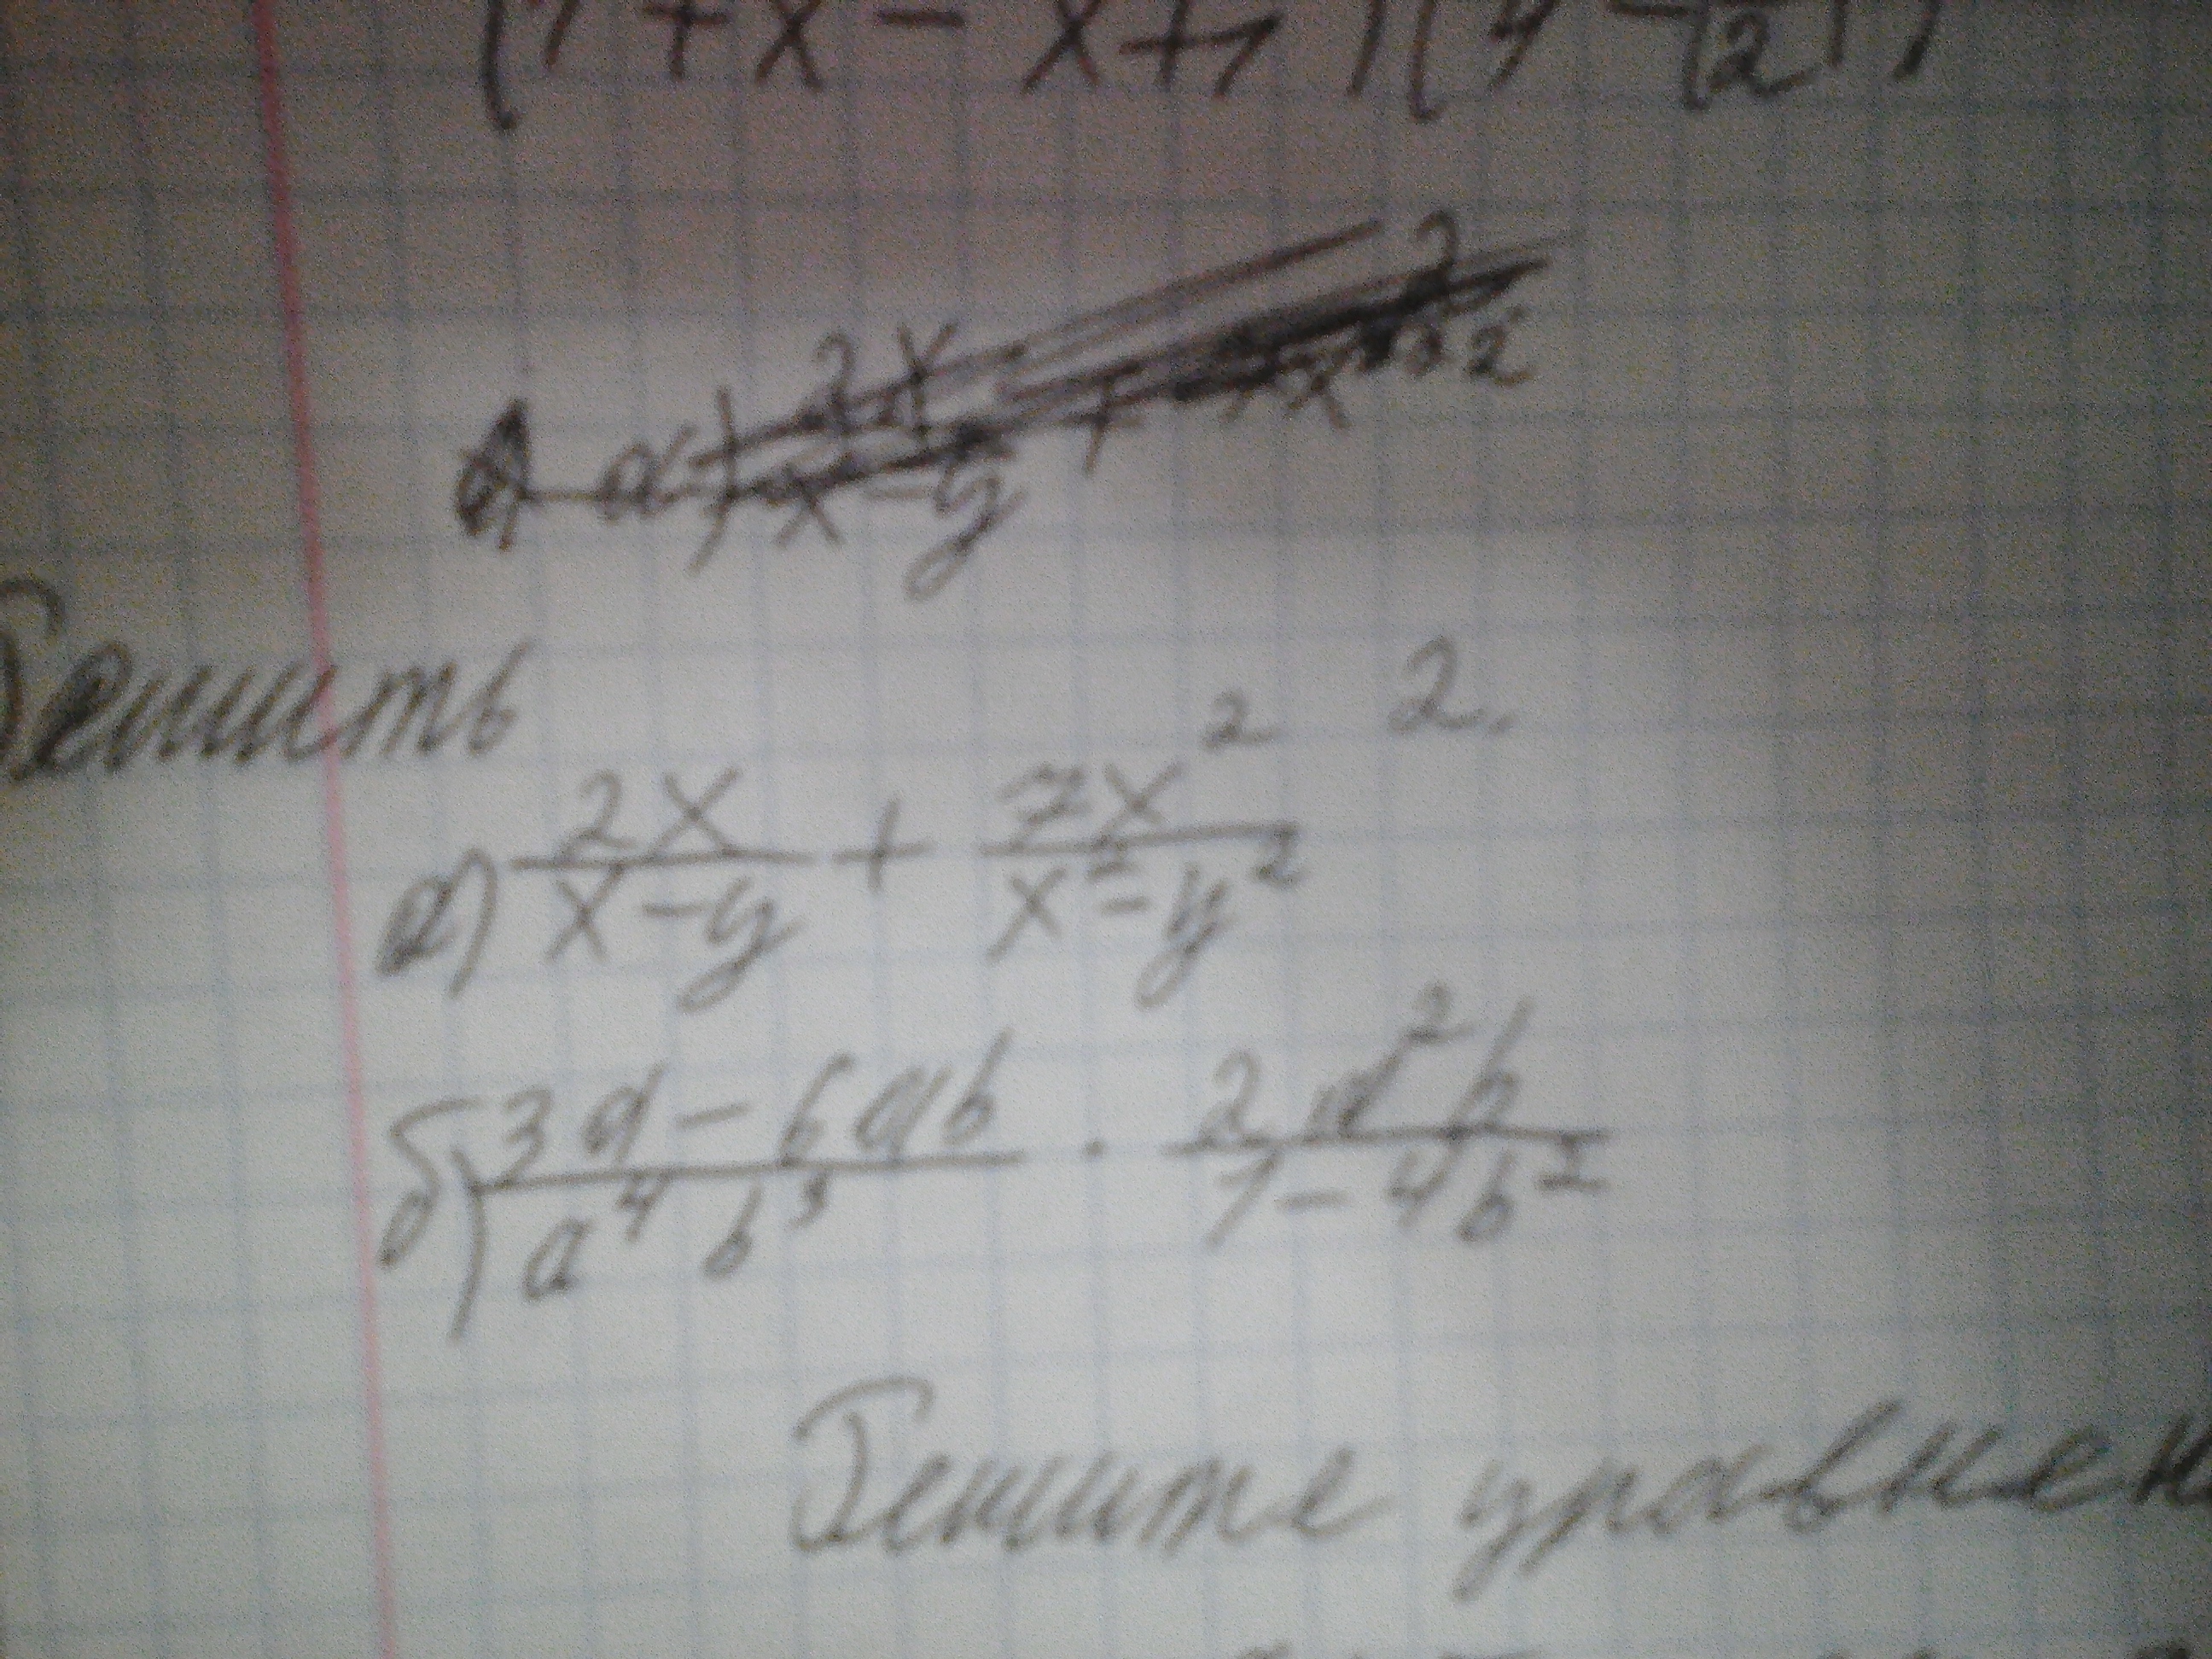 (1+x - x+1)(1 - 12)
Решить
2.
а) 2x/x-y + 7x²/x²-y²
б) 3a - 6ab/a⁴b³ · 2a²b/1-4b²
Решите уравнен